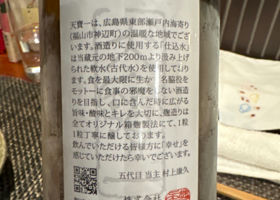 天寶一は、広島県東部瀬戸内海寄り
(福山市神辺町)の温暖な地域でござ
います。酒造りに使用する「仕込水」
は当蔵元の地下200mより汲み上げ
られた軟水(古代水)を使用しており
ます。食を最大限に生かす名脇役を
モットーに食事の邪魔をしない酒造
りを目指し、口に含んだ時に広がる
旨味・酸味とキレを大切に、麹造りは
全てオリジナル箱麹製法にて、1粒
1粒丁寧に醸しております。
飲んでいただける皆様方に「幸せ」を
感じていただけたら幸いでございます。
五代目 当主 村上康久
株式会社